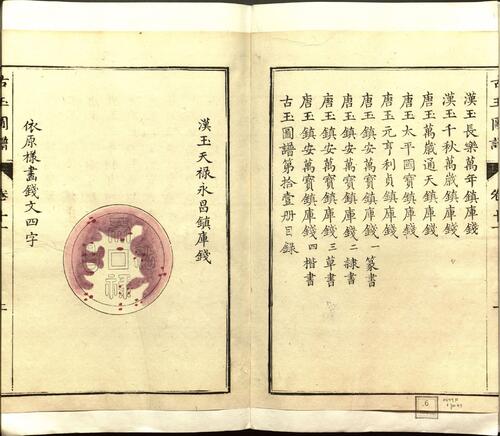 漢玉長樂萬年鎮庫錢
漢玉千秋萬歲鎮庫錢
唐玉萬歲通天鎮庫錢
唐玉太平國寶鎮庫錢
唐玉元亨利貞鎮庫錢
唐玉鎮安萬寶鎮庫錢一篆書
唐玉鎮安萬寶鎮庫錢二隸書
唐玉鎮安萬寶鎮庫錢三草書
唐玉鎮安萬寶鎮庫錢四楷書
古玉圖譜第拾壹册目錄
古玉圖譜
卷十一
一
漢玉天祿永昌鎮庫錢
依原樣畫錢文四字
古玉圖譜
卷十一
一
6